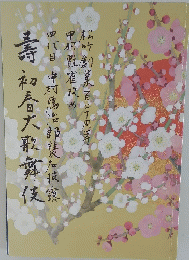 松竹創業百二十周年
中村鴈雀改め
四代目 中村鴈治郎襲名披露
壽 初春大歌舞伎